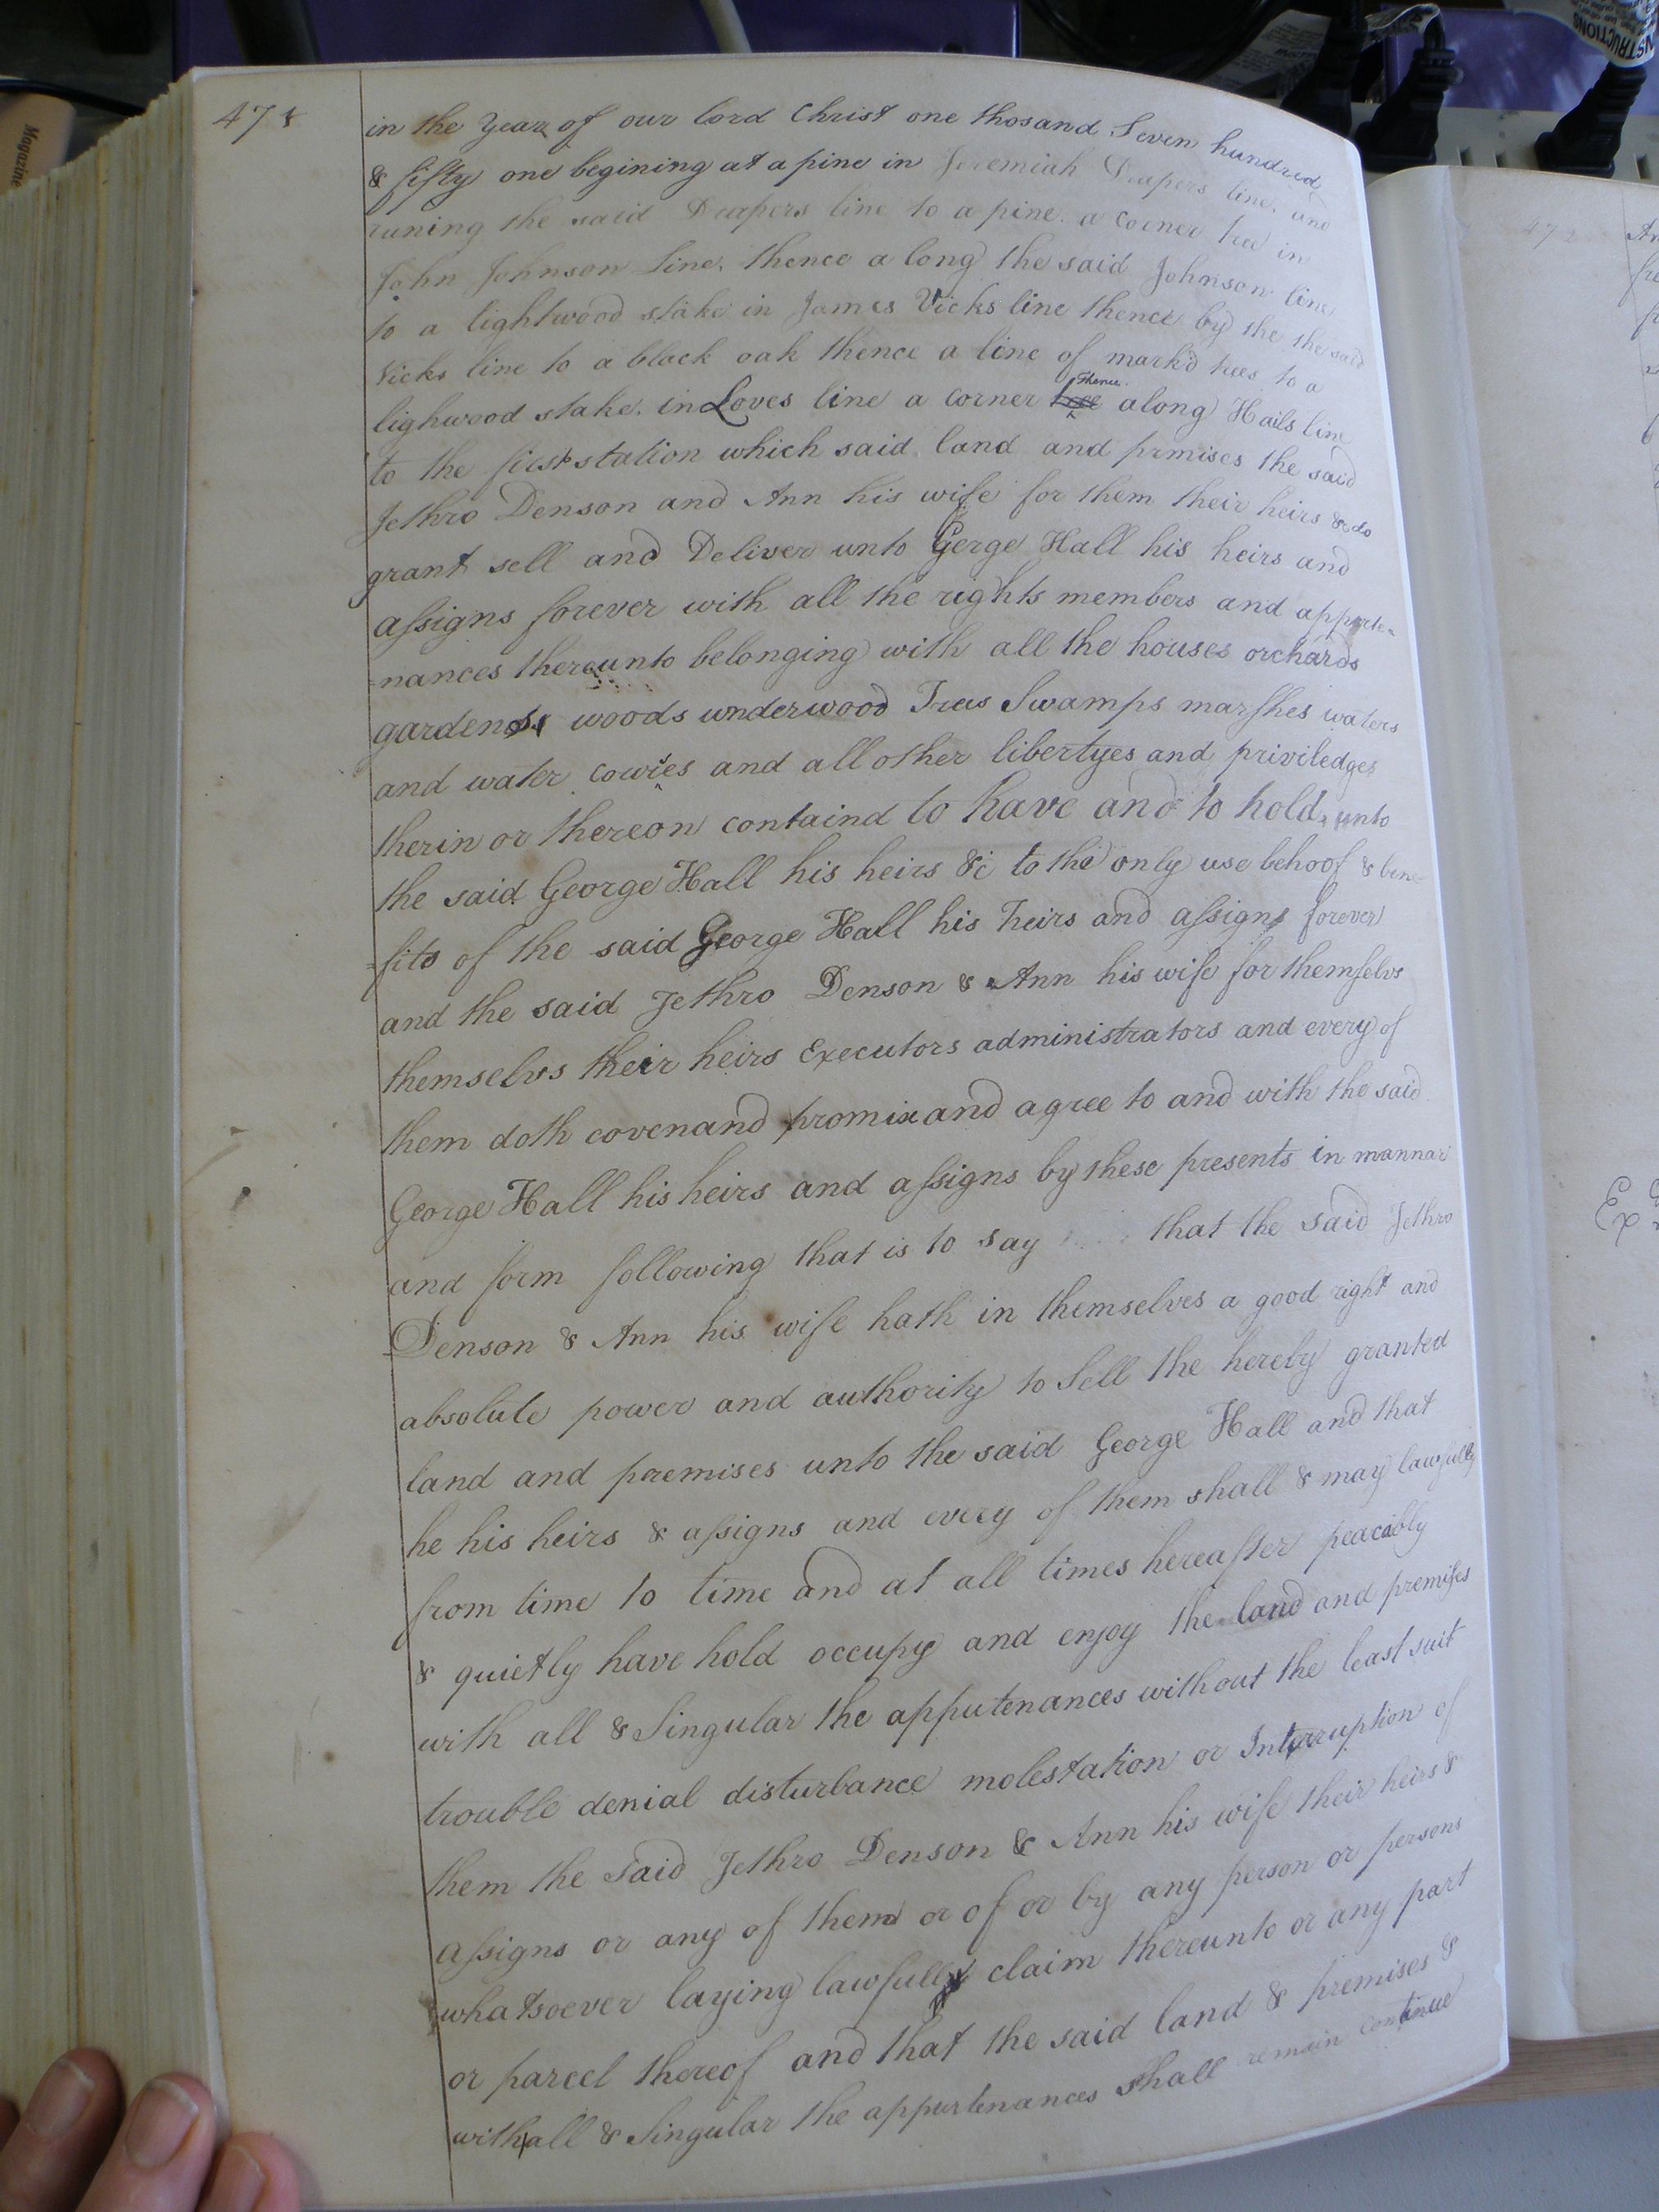 478
in the Year of our lord Christ one thosand Seven hundred
& fifty one begining at a pine in Jeremiah Drapers line. and
runing the said Drapers line to a pine. a Corner tree in
John Johnson Line. thence a long the said Johnson line
to a lightwood stake in James Vicks line thence by the the said
Vicks line to a black oak thence a line of markd trees to a
lighwood stake. in Loves line a corner tree thence along Hails line
to the first station which said land and prmises the said
Jethro Denson and Ann his wife for them their heirs & do
grant sell and Deliver unto Gerge Hall his heirs and
assigns forever with all the rights members and apperte=
=nances thereunto belonging with all the houses orchards
gardens woods underwood Trees Swamps marshes waters
and water cowres and all other libertyes and priviledges
therin or thereon containd to have and to hold unto
the said George Hall his heirs &c to the only use behoof & bene
=fits of the said George Hall his heirs and assigns forever
and the said Jethro Denson & Ann his wife for themselvs
themselvs their heirs Executors administrators and every of
them doth covenand promise and agree to and with the said
George Hall his heirs and assigns by these presents in mannar
and form following that is to say that the said Jethro
Denson & Ann his wife hath in themselves a good right and
absolute power and authority to Sell the hereby granted
land and premises unto the said George Hall and that
he his heirs & assigns and every of them shall & may lawfully
from time to time and at all times hereafter peacibly
& quietly have hold occupy and enjoy the land and premises
with all & Singular the apputenances without the least suit
trouble denial disturbance molestation or Interruption of
them the said Jethro Denson & Ann his wife their heirs &
assigns or any of them or of or by any person or persons
whatsoever laying lawfully claim thereunto or any part
or parcel thereof and that the said land & premises &
with all & Singular the appurtenances shall remain continue
Magazine
INSTRUCTIONS